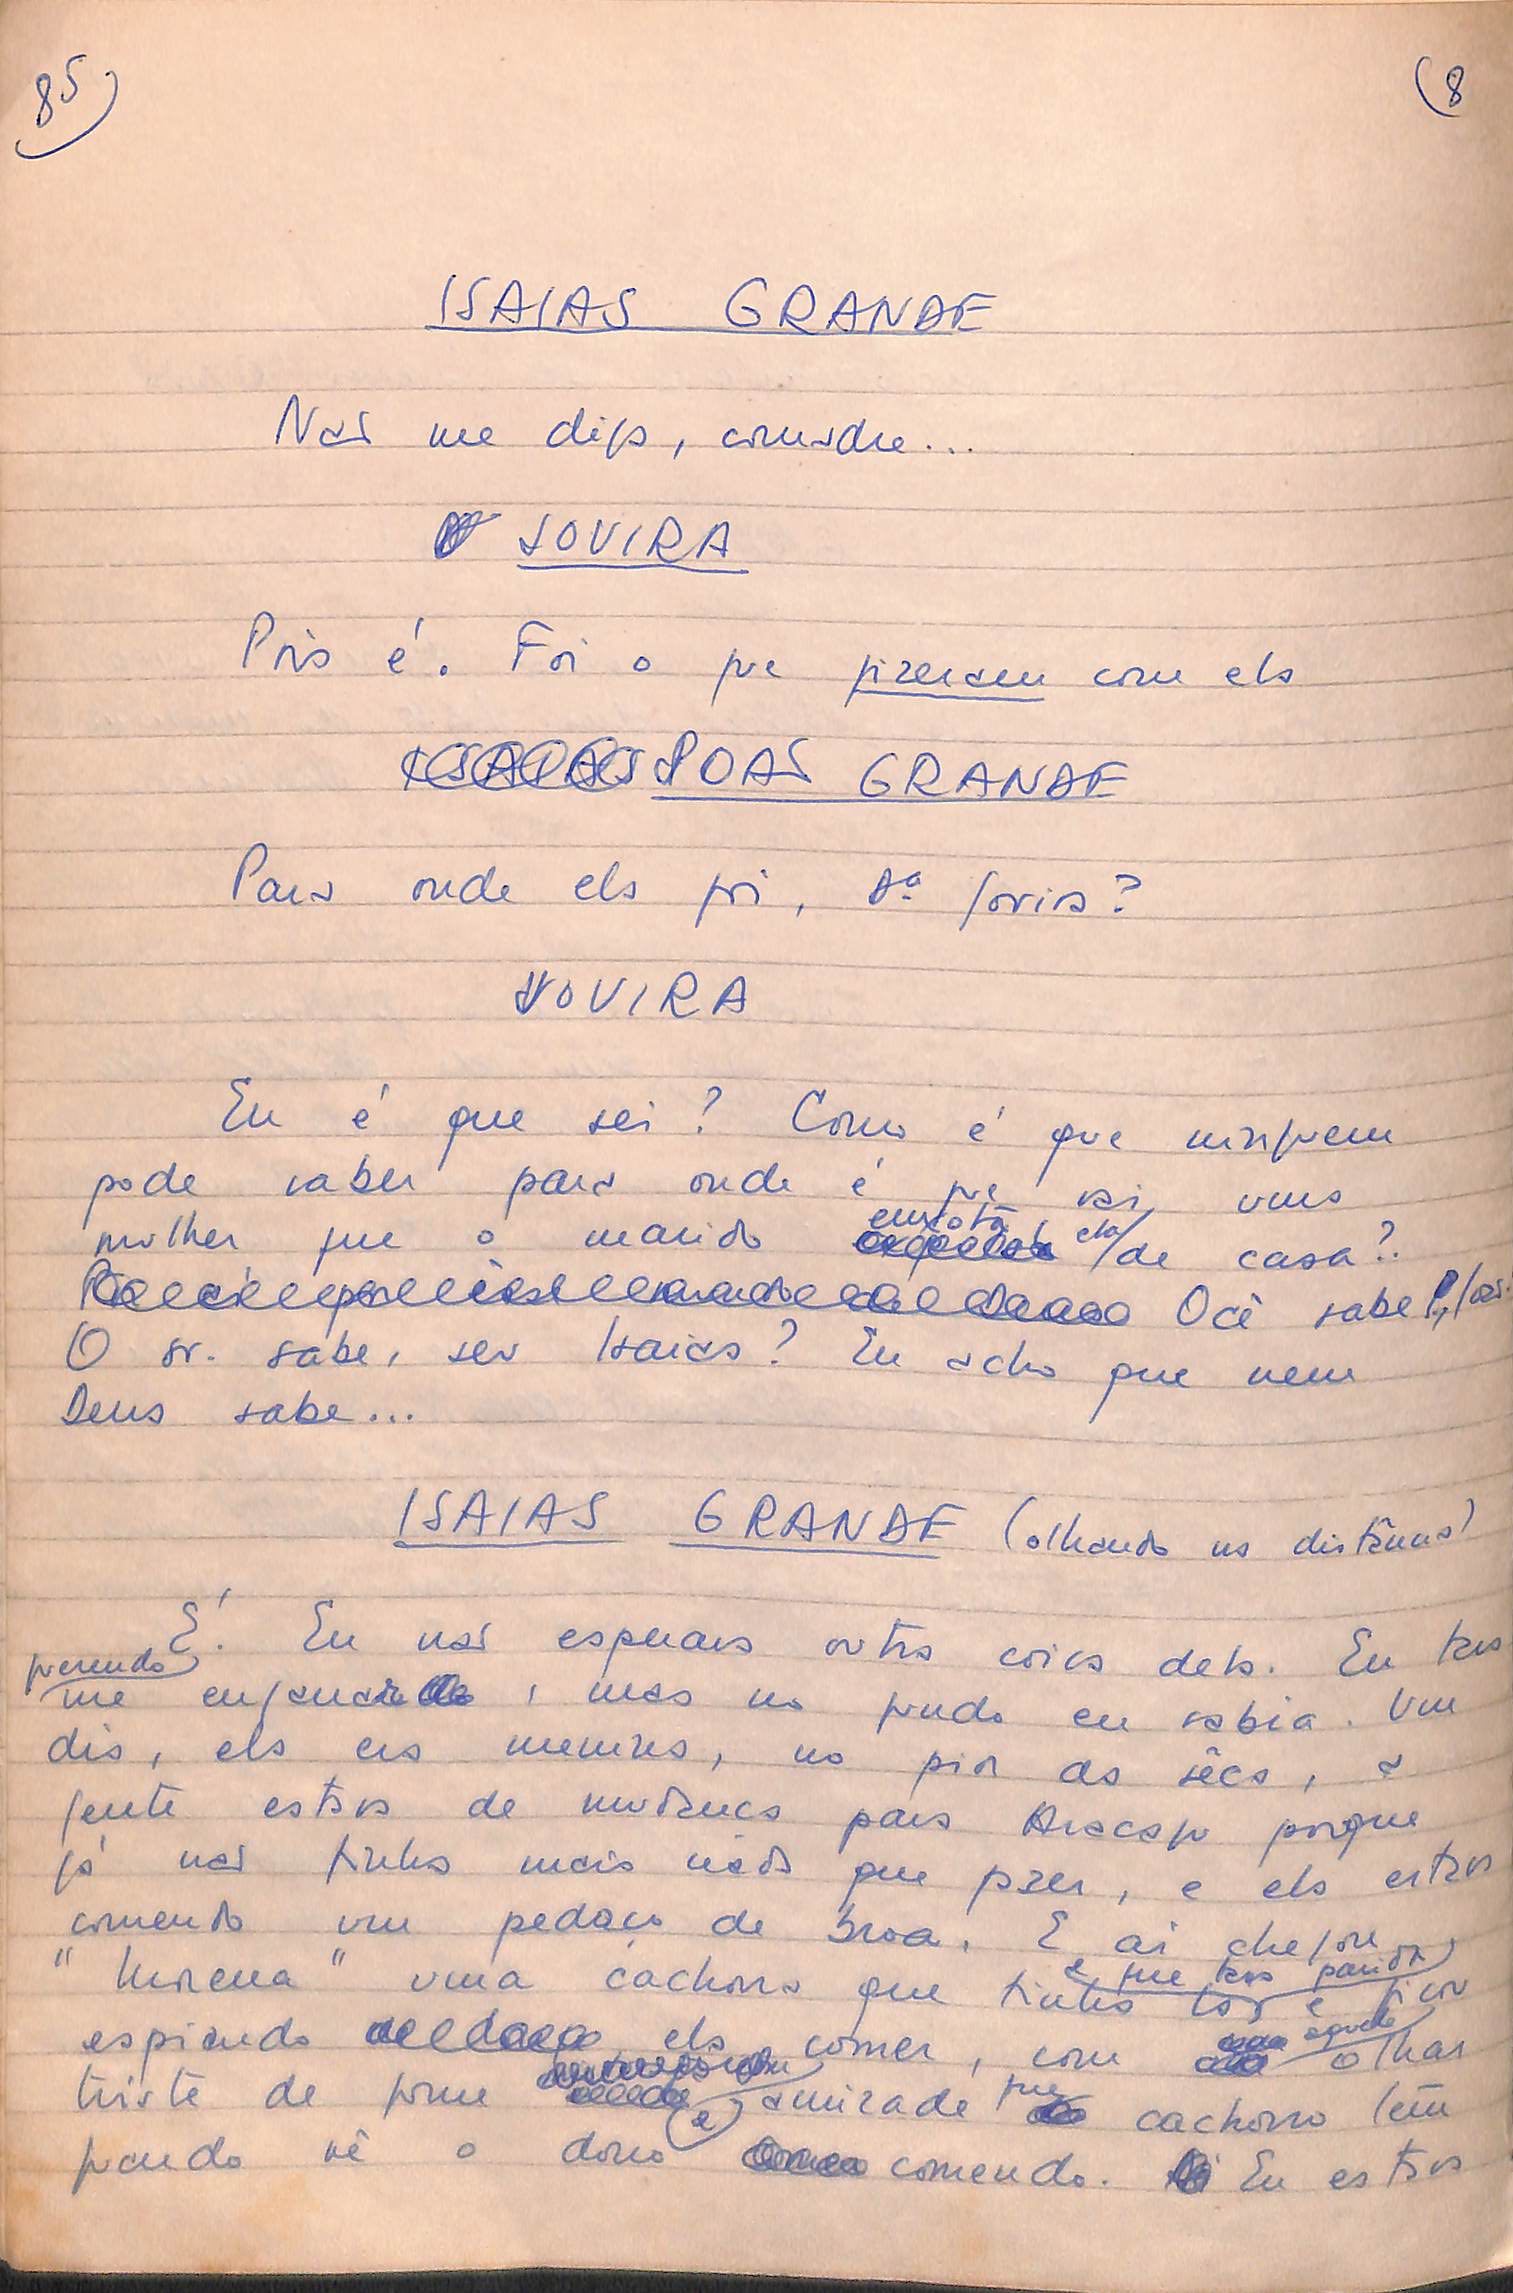 85)
(8
ISAIAS GRANDE
Não me diga, comadre...
JOVIRA
Pois é. Foi o que fizeram com ela
JOÃO GRANDE
Para onde ela foi, Dª Jovira?
JOVIRA
Eu é que sei? Como é que ninguem
pode saber para onde é que vai uma
mulher que o marido enxota ela de casa?
Ocê sabe, João?
O sr. sabe, seu Isaias? Eu acho que nem
Deus sabe...
ISAIAS GRANDE (olhando na distância)
É. Eu não esperava outra coisa dela. Eu tava
querendo
me enganar, mas no fundo eu sabia. Um
dia, ela era menina, no pior da sêca, a
gente estava de mudança para Aracaju porque
já não tinha mais nada que fazer, e ela estava
comendo um pedaço de broa. E aí chegou
"Morena" uma cachorra que tinha lá e ficou
e que tava parida
espiando ela comer, com aquele olhar
triste de fome e amizade que cachorro tem
quando vê o dono comendo. Eu estava